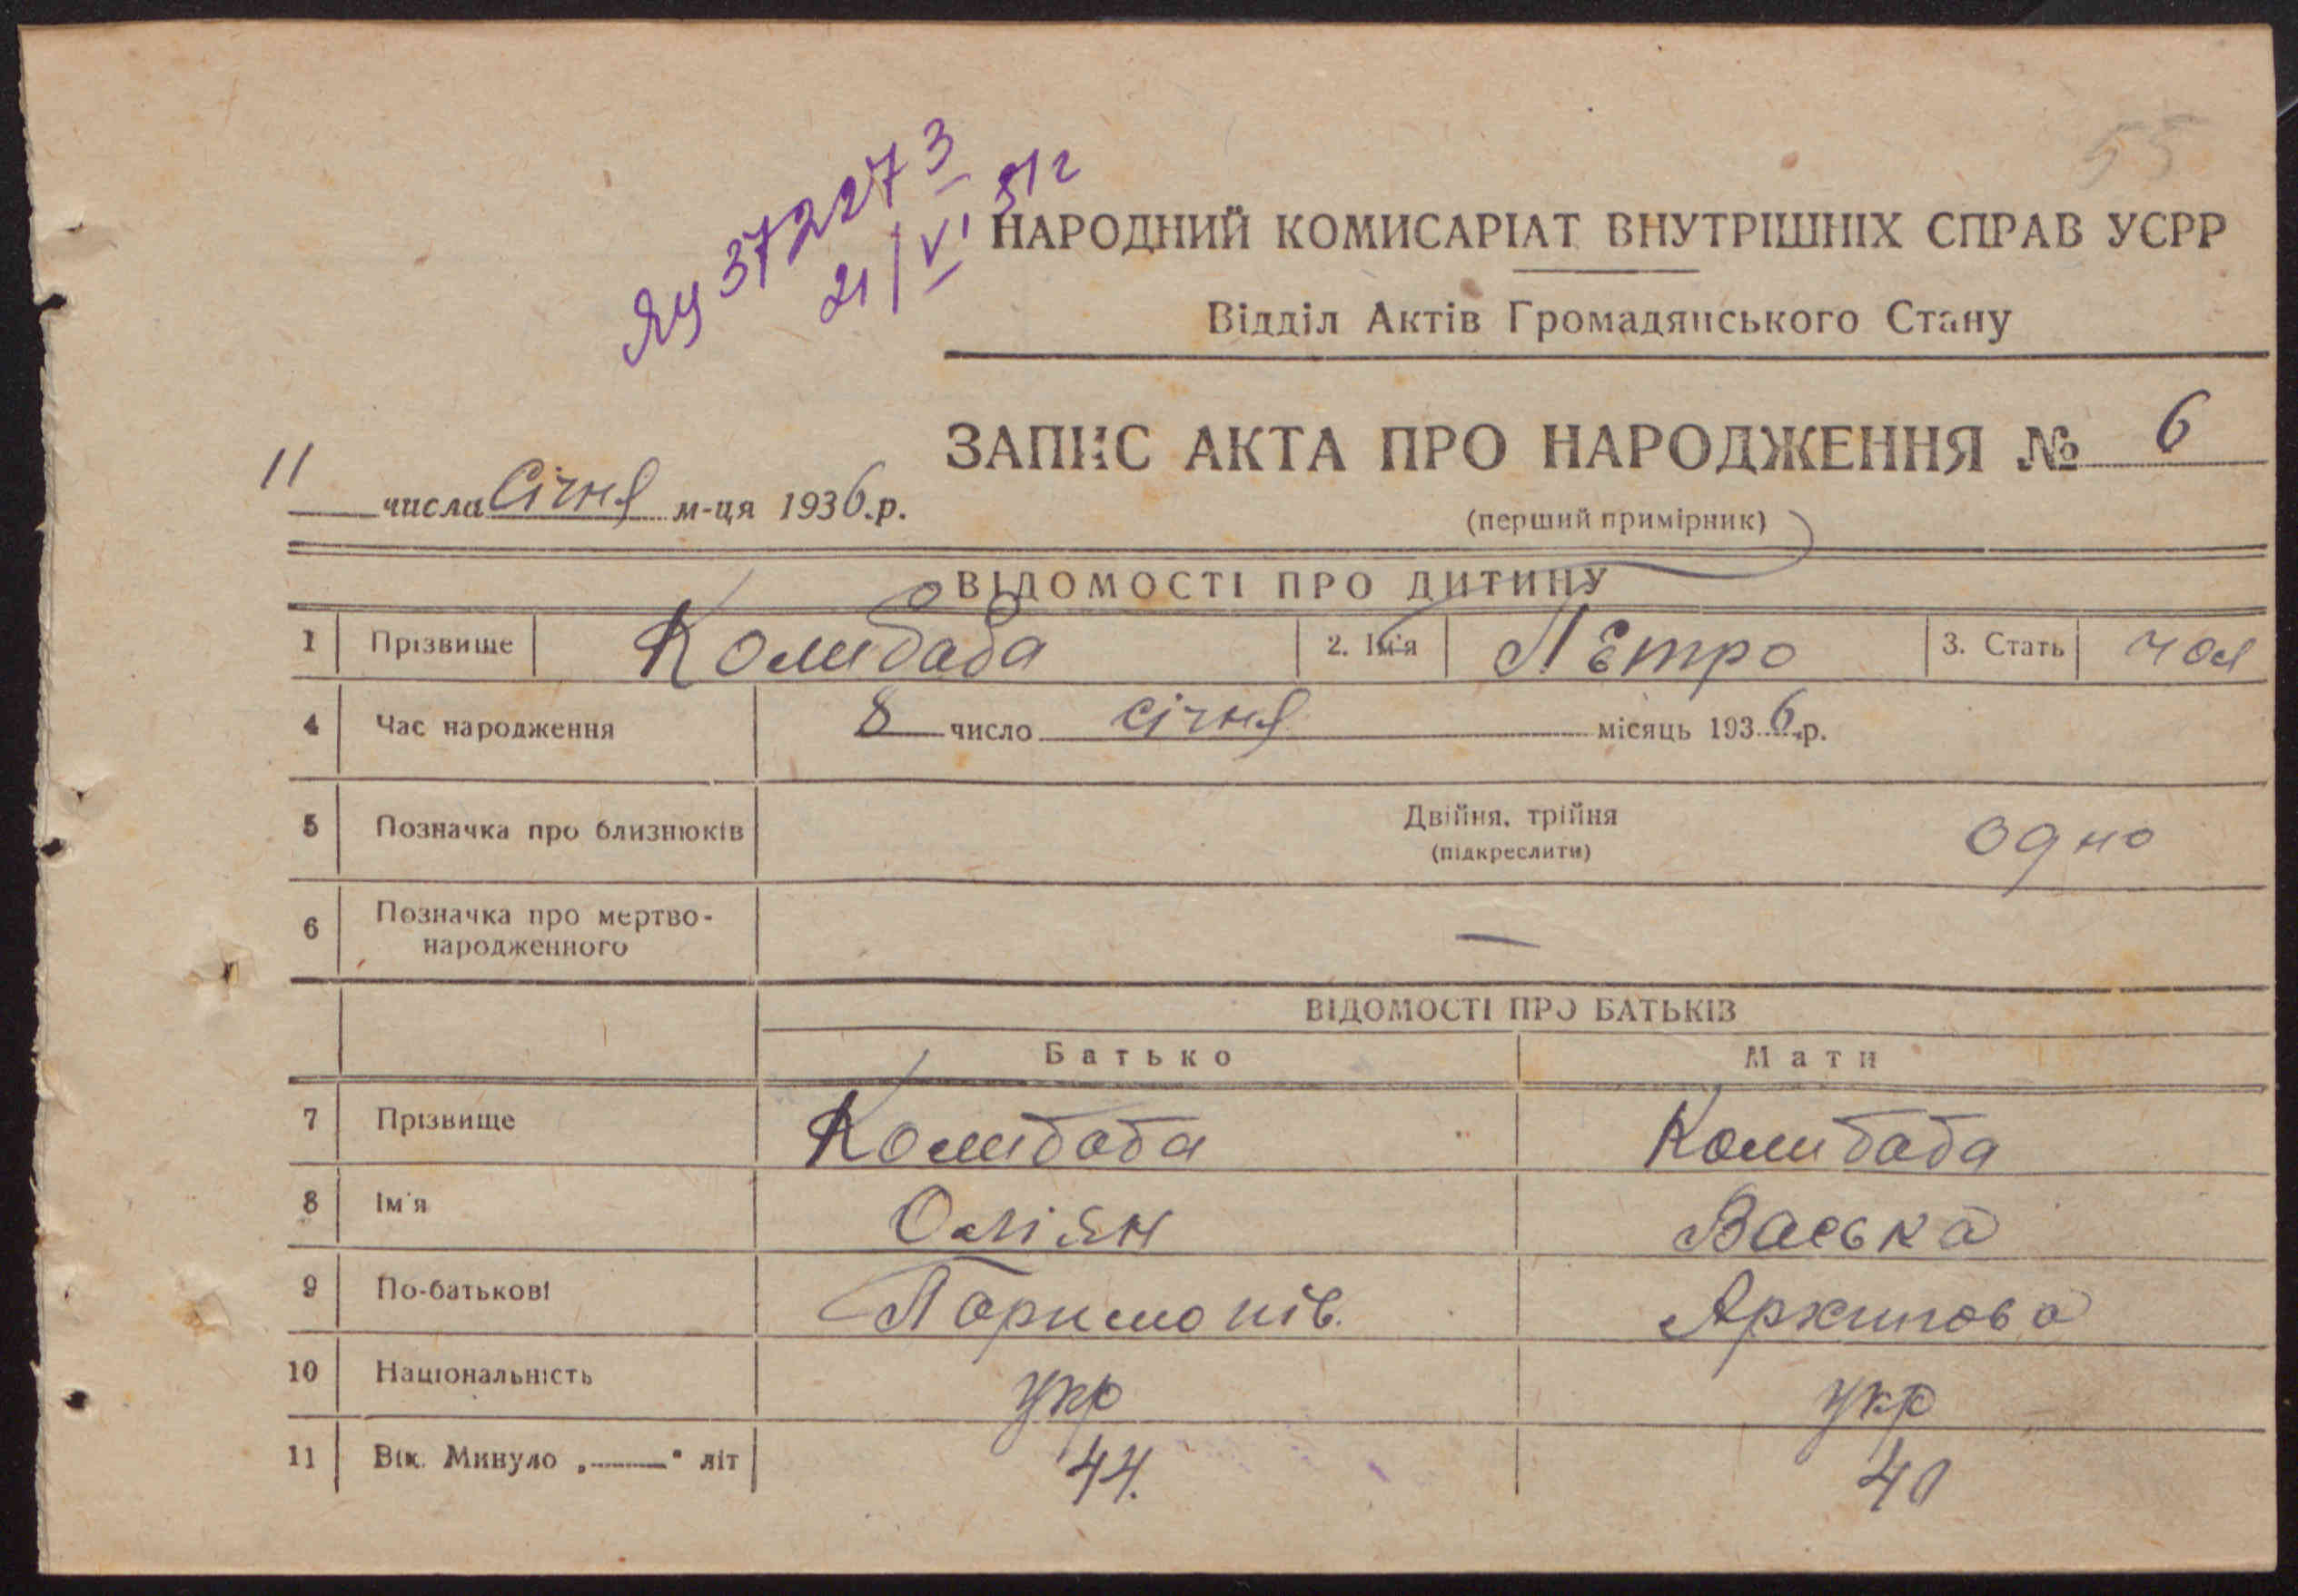 55
ЯЧ 372273
21/VI 51 г
НАРОДНИЙ КОМИСАРІАТ ВНУТРІШНІХ СПРАВ УСРР
Відділ Актів Громадянського Стану
ЗАПИС АКТА ПРО НАРОДЖЕННЯ № 6
11 числа Січня м-ця 1936.р.
(перший примірник)
ВІДОМОСТІ ПРО ДИТИНУ
1 Прізвище Колибаба 2. Ім'я Петро 3. Стать чол
4 Час народження 8 число січня місяць 1936.р.
5 Позначка про близнюків Двійня, трійня одно
(підкреслити)
6 Позначка про мертво-
народженного —
ВІДОМОСТІ ПРО БАТЬКІВ
Батько Мати
7 Прізвище Колибаба Колибаба
8 Ім'я Васька
9 По-батькові Паримонів. Архипова
10 Національність укр укр
11 Вік. Минуло „——" літ 44. 40